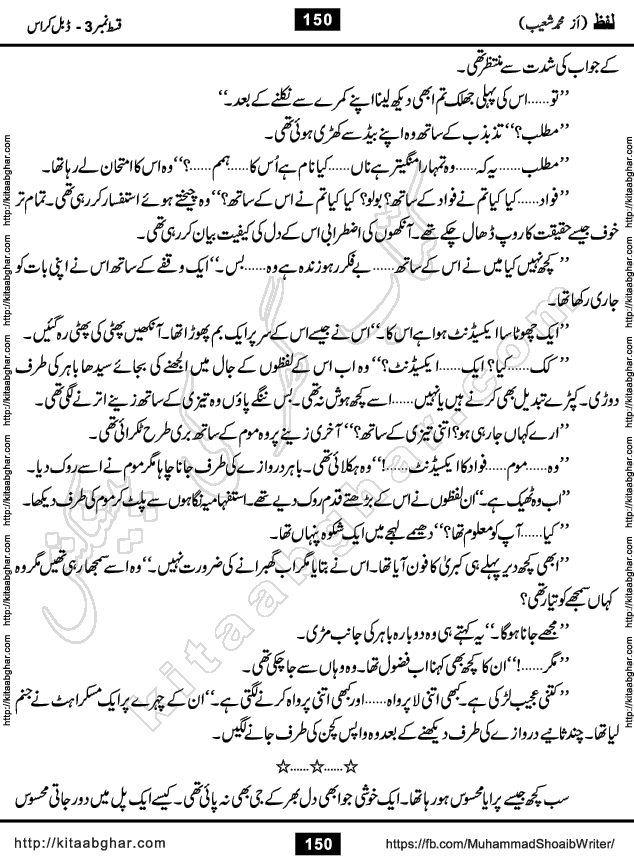 لفظ (از محمد شعیب)
150
قسط نمبر 3 - ڈبل کراس
کے جواب کی شدت سے منتظر تھی۔
’’تو……اس کی پہلی جھلک تم ابھی دیکھ لینا اپنے کمرے سے نکلنے کے بعد۔‘‘
’’مطلب؟‘‘ تذبذب کے ساتھ وہ اپنے بیڈ سے کھڑی ہوئی تھی۔
’’مطلب……یہ کہ……وہ تمہارا منگیتر ہے ناں……کیا نام ہے اُس کا……ہمم……؟‘‘ وہ اس کا امتحان لے رہا تھا۔
’’فواد……کیا کیا تم نے فواد کے ساتھ؟ بولو؟ کیا کیا تم نے اس کے ساتھ؟‘‘ وہ چیختے ہوئے استفسار کر رہی تھی۔ تمام تر
خوف جیسے حقیقت کا روپ ڈھال چکے تھے۔ آنکھوں کی اضطرابی اس کے دل کی کیفیت بیان کر رہی تھی۔
’’کچھ نہیں کیا میں نے اس کے ساتھ……بے فکر رہو زندہ ہے وہ……بس۔‘‘ ایک وقفے کے ساتھ اس نے اپنی بات کو
جاری رکھا تھا۔
’’ایک چھوٹا سا ایکسیڈنٹ ہوا ہے اس کا۔‘‘ اس نے جیسے اس کے سر پر ایک بم پھوڑا تھا۔ آنکھیں پھٹی کی پھٹی رہ گئیں۔
’’کک……کیا؟ ایک……ایکسیڈنٹ؟‘‘ وہ اب اس کے لفظوں کے جال میں الجھنے کی بجائے سیدھا باہر کی طرف
دوڑی۔ کپڑے تبدیل بھی کرنے ہیں یا نہیں……اسے کچھ ہوش نہ تھی۔ بس ننگے پاؤں وہ تیزی کے ساتھ زینے اترنے لگی تھی۔
’’ارے کہاں جا رہی ہو؟ اتنی تیزی کے ساتھ؟‘‘ آخری زینے پر وہ موم کے ساتھ بری طرح ٹکرائی تھی۔
’’وہ……موم……فواد کا ایکسیڈنٹ……!‘‘ وہ ہکلائی تھی۔ باہر دروازے کی طرف جانا چاہا مگر موم نے اسے روک دیا۔
’’اب وہ ٹھیک ہے۔‘‘ ان لفظوں نے اس کے بڑھتے قدم روک دیے تھے۔ استفہامیہ نگاہوں سے پلٹ کر موم کی طرف دیکھا۔
’’کیا……آپ کو معلوم تھا؟‘‘ دھیمے لہجے میں ایک شکوہ پنہاں تھا۔
’’ابھی کچھ دیر پہلے ہی کبریٰ کا فون آیا تھا۔ اس نے بتایا مگر اب گھبرانے کی ضرورت نہیں۔‘‘ وہ اسے سمجھا رہی تھیں مگر وہ
کہاں سمجھے کو تیار تھی؟
’’مجھے جانا ہوگا۔‘‘ یہ کہتے ہی وہ دوبارہ باہر کی جانب مڑی۔
’’مگر……!‘‘ ان کا کچھ بھی کہنا اب فضول تھا۔ وہ وہاں سے جا چکی تھی۔
’’کتنی عجیب لڑکی ہے۔ کبھی اتنی لا پرواہ……اور کبھی اتنی پرواہ کرنے لگتی ہے۔‘‘ ان کے چہرے پر ایک مسکراہٹ نے جنم
لیا تھا۔ چند ثانیے دروازے کی طرف دیکھنے کے بعد وہ واپس کچن کی طرف جانے لگیں۔
☆……☆……☆
سب کچھ جیسے پرایا محسوس ہو رہا تھا۔ ایک خوشی جو ابھی دل بھر کے جی بھی نہ پائی تھی۔ کیسے ایک پل میں دور جاتی محسوس
http://kitaabghar.com
150
https://fb.com/MuhammadShoaibWriter/
http://kitaabghar.com http://kitaabghar.com http://kitaabghar.com http://kitaabghar.com http://kitaabghar.com http://kitaabghar.com
http://kitaabghar.com http://kitaabghar.com http://kitaabghar.com http://kitaabghar.com http://kitaabghar.com http://kitaabghar.com
کتاب گھر کی پیشکش
kitaabghar.com